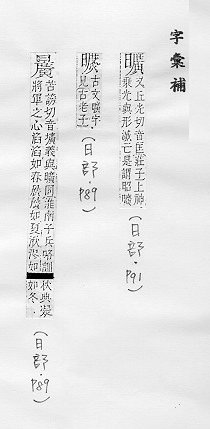 字彙補
曠
又丘光切音匡莊子上神
乘光與形滅亡是謂昭曠
(日部·P91)
古文曠字
見古老子
(日部·P89)
苦謗切音壙義與曠同淮南子兵略訓
將軍之心滔滔如春如夏湫漻如
秋典凝
如冬
(日部·P89)